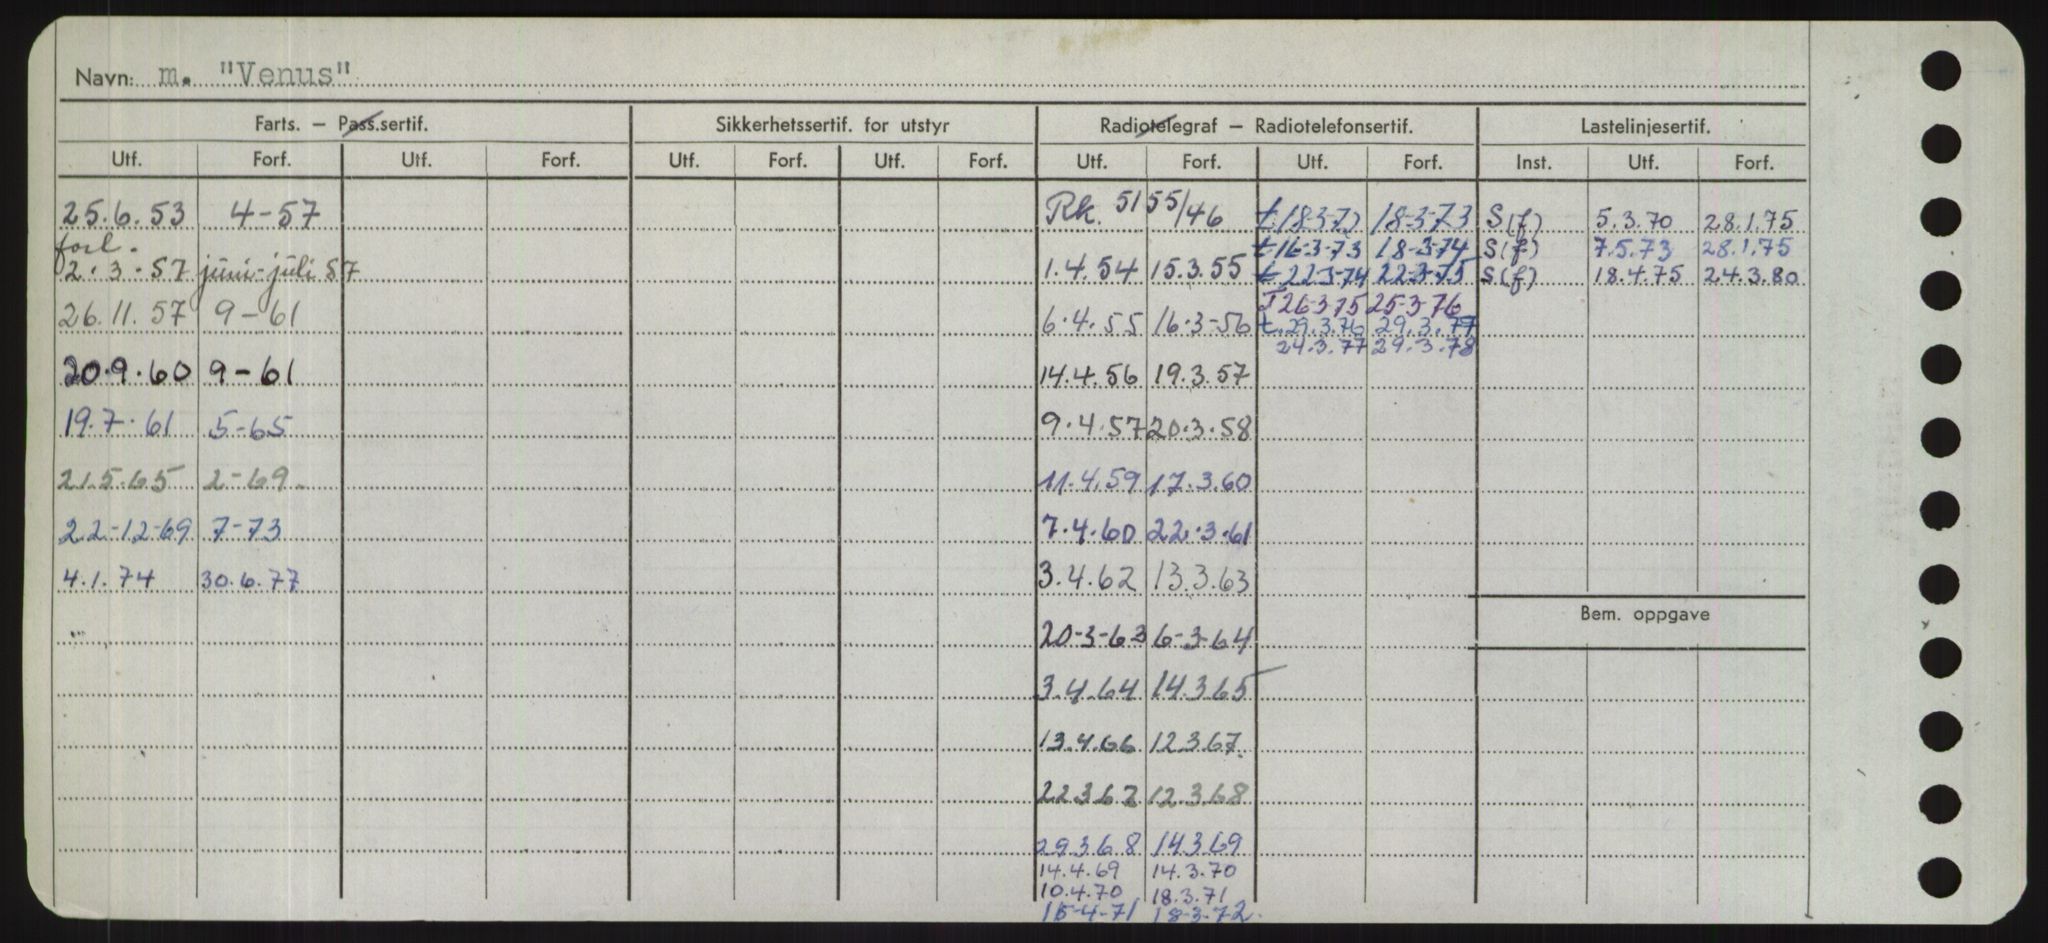 Navn: m. "Venus"
Farts. — Pass.sertif. Sikkerhetssertif. for utstyr Radiotelegraf — Radiotelefonsertif. Lastelinjesertif.
Utf. Forf. Utf. Forf. Utf. Forf. Utf. Forf. Utf. Forf. Utf. Forf. Inst. Utf. Forf.
25.6.53 4-57 Rk. 5155/46 t.18-3-72 18-3-73 S(f) 5.3.70 28.1.75
forl. t 16-3-73 18-3-74 S(f) 7.5.73 28.1.75
2.3.57 juni-juli 57 1.4.54 15.3.55 t 22-3-74 22-3-75 S(f) 18.4.75 24.3.80
T 26-3-75 25-3-76
26.11.57 9-61 6.4.55 16.3-56 t.29.3.76 29.3.77
24.3.77 29.3.78
20.9.60 9-61 14.4.56 19.3.57
19.7.61 5-65 9.4.57 20.3.58
21.5.65 2-69. 11.4.59 17.3.60
22-12-69 7-73 7.4.60 22.3.61
4.1.74 30.6.77 3.4.62 13.3.63
Bem. oppgave
20-3-63 6-3-64
3.4.64 14.3.65
13.4.66 12.3.67.
22.3.67 12.3.68
29.3.68 14.3.69
14.4.69 14.3.70
10.4.70 18.3.71
15-4-71 18-3-72.